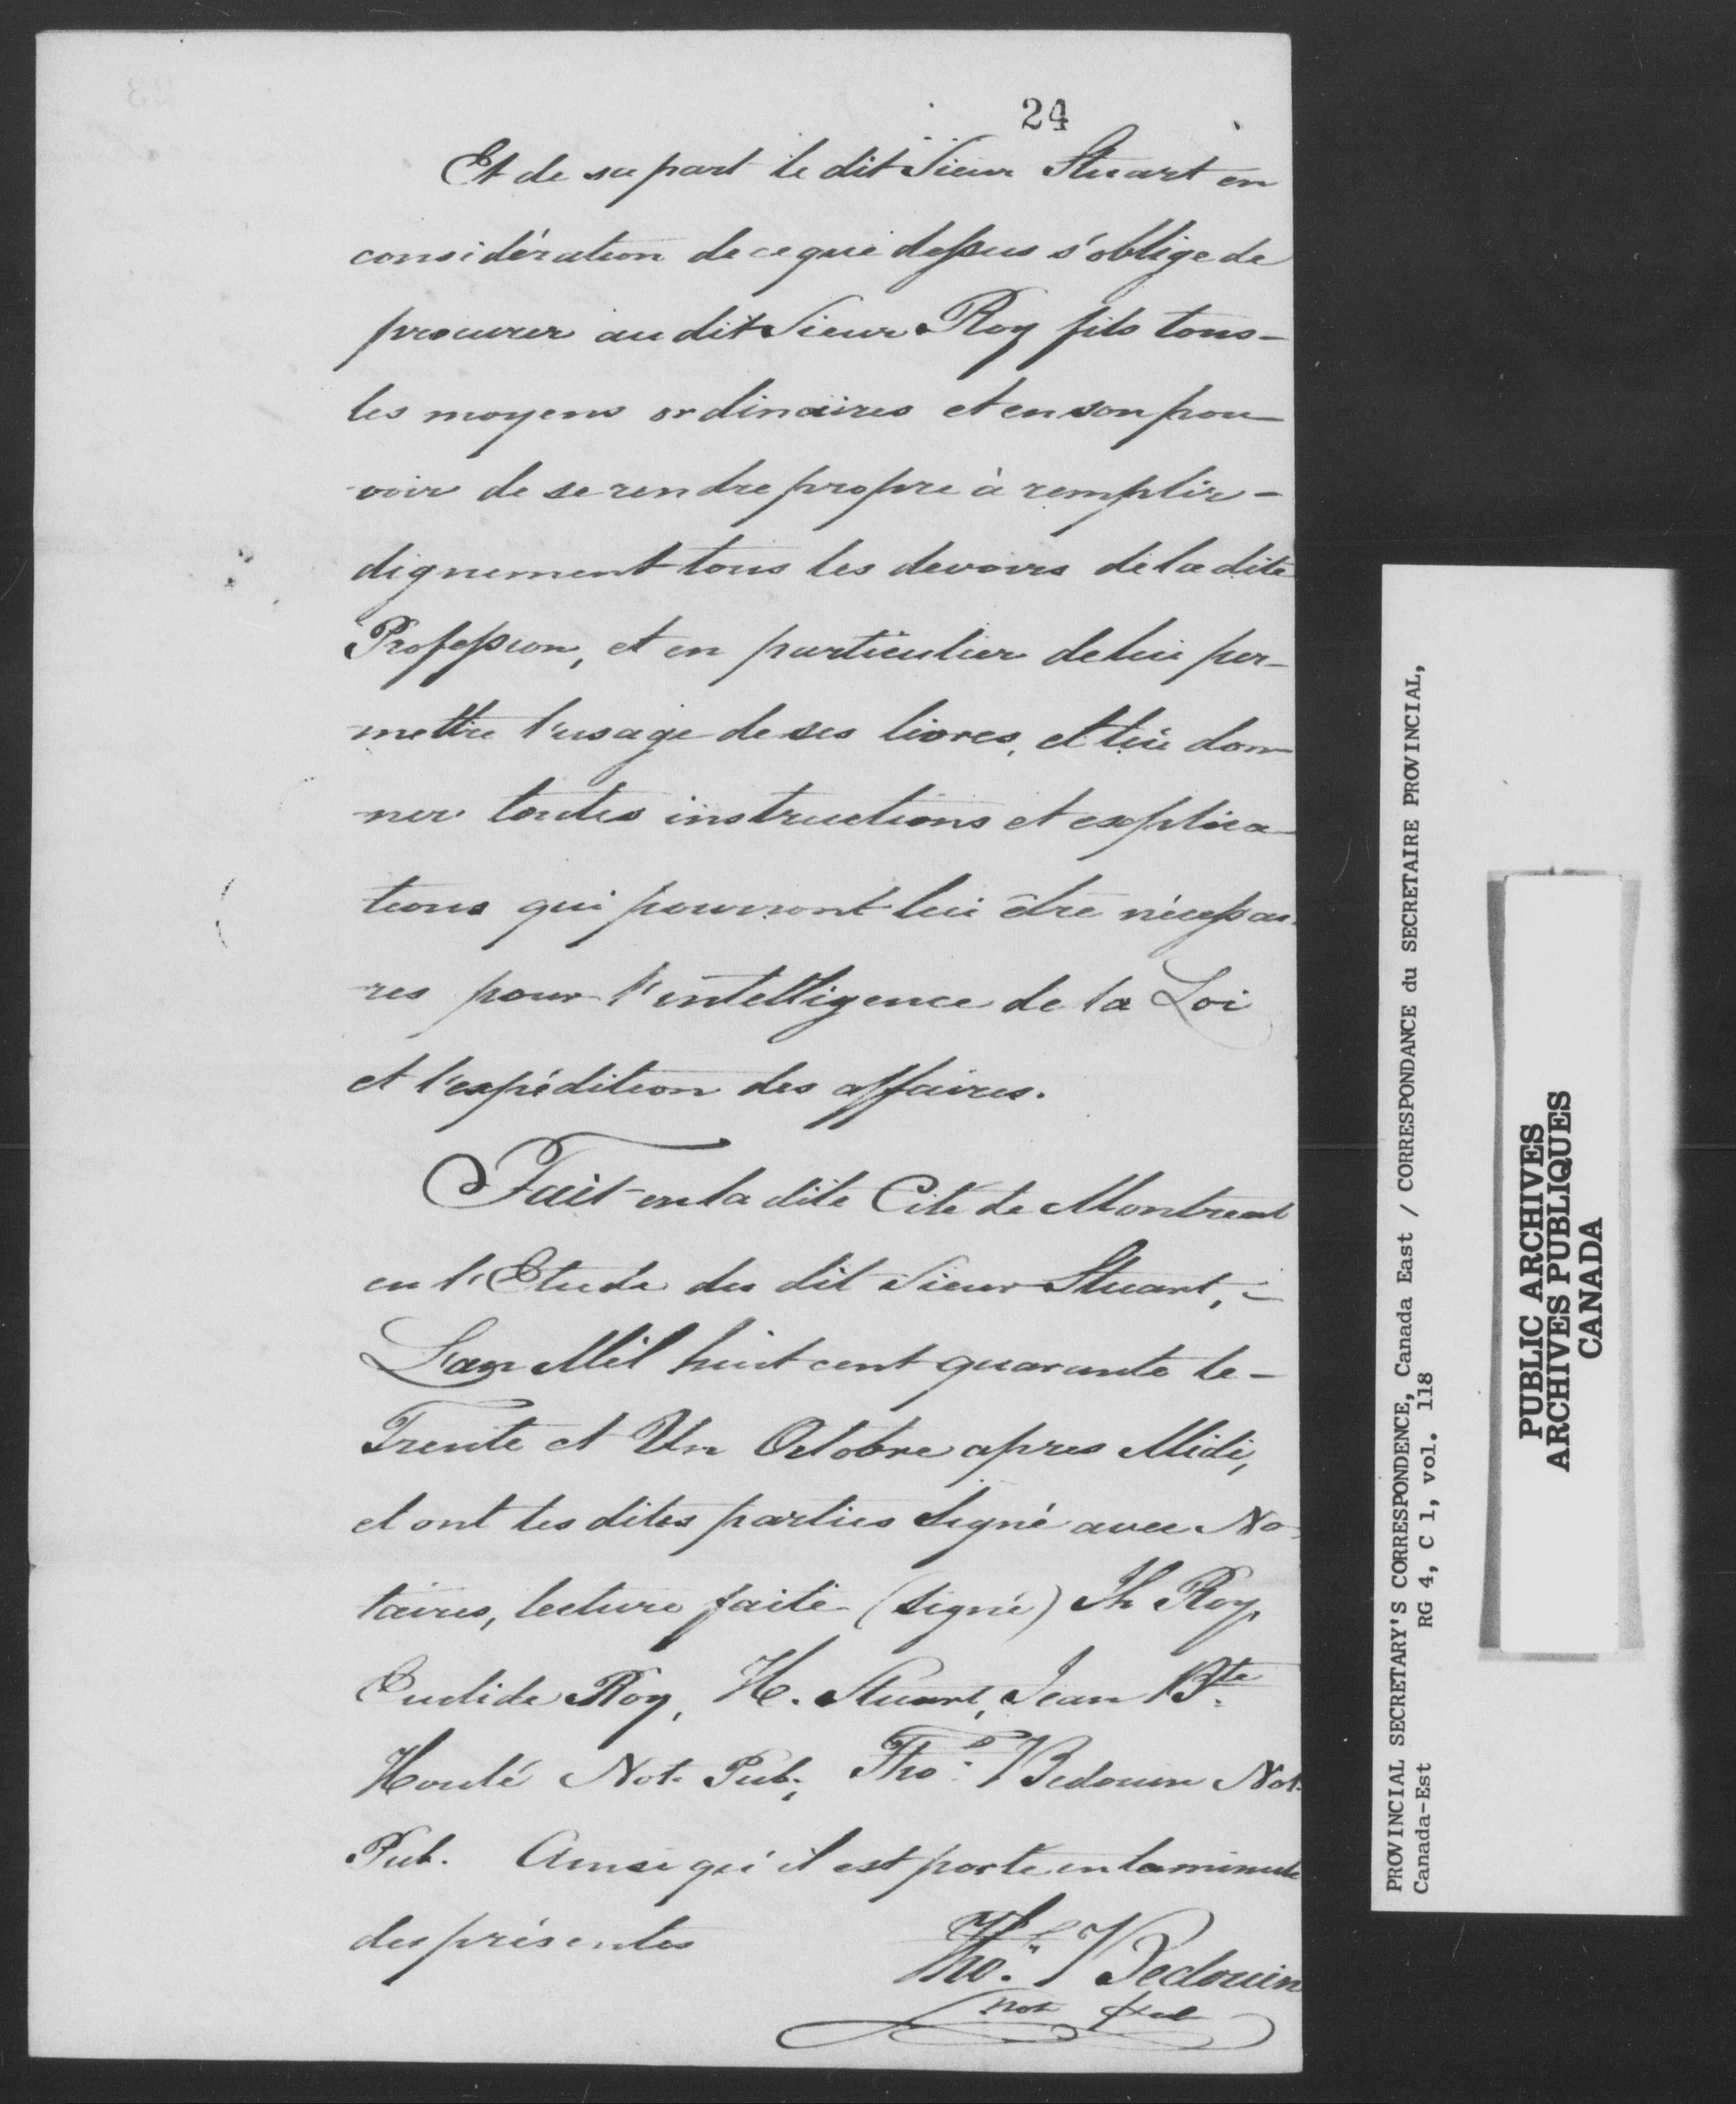 24
Et de sa part le dit Sieur Stuart en
considération de ce que dessus s'oblige de
procurer au dit Sieur Roy fils tous -
les moyens ordinaires et en son pou-
voir de se rendre propre à remplir -
dignement tous les devoirs de la dite
Profession, et en particulier de lui per-
mettre l'usage de ses livres, et lui don-
ner toutes instructions et explica-
tions qui pourront lui être nécessai-
res pour l'intelligence de la Loi
et l'expédition des affaires.
Fait en la dite Cité de Montreal
en l'Etude du dit Sieur Stuart, -
L'an Mil huit cent quarante le -
Trente et Un Octobre apres Midi,
et ont les dites parties signé avec No-
taires, lecture faite (signé) Jh Roy
Euclide Roy, H. Stuart, Jean Bte
Houlé Not. Pub; Thos Bedouin Not.
Pub. Ainsi qu'il est porté en la minute
des présentes
Thos Bedouin
not Pub
PROVINCIAL SECRETARY'S CORRESPONDENCE, Canada East / CORRESPONDANCE du SECRETAIRE PROVINCIAL,
Canada-Est RG 4, C 1, vol. 118
PUBLIC ARCHIVES
ARCHIVES PUBLIQUES
CANADA